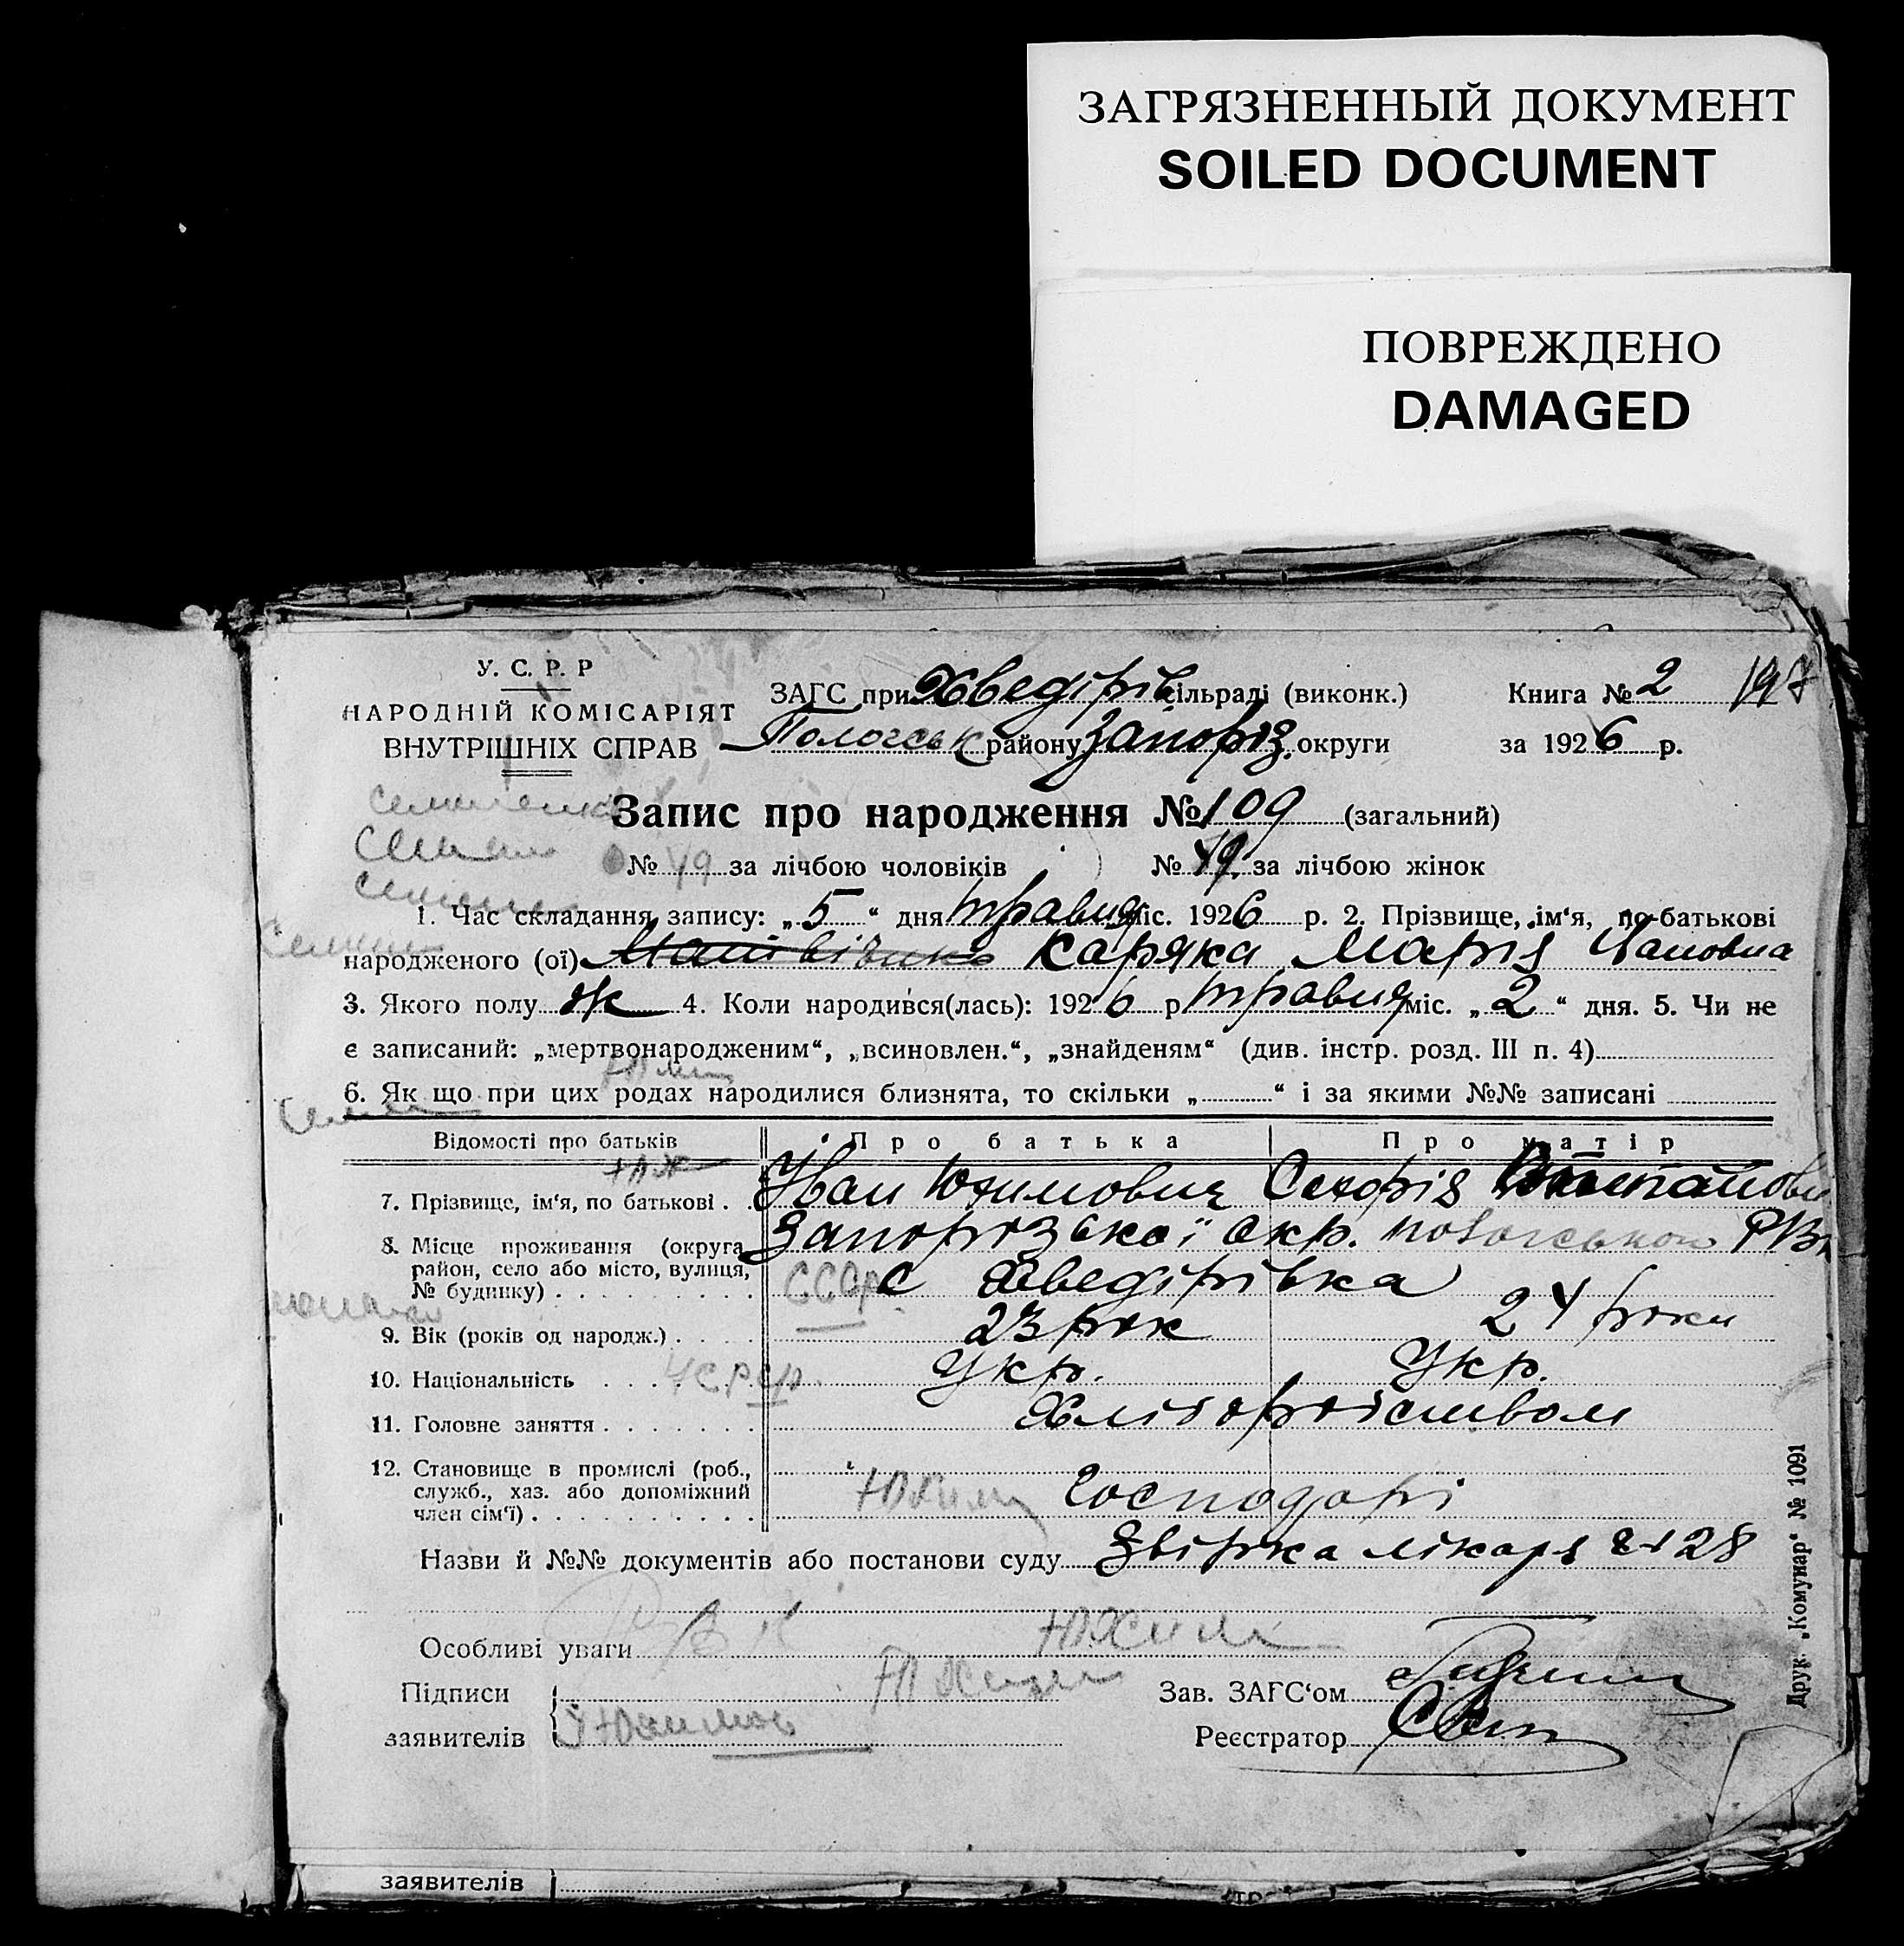 ЗАГРЯЗНЕННЫЙ ДОКУМЕНТ
SOILED DOCUMENT
ПОВРЕЖДЕНО
DAMAGED
У. С. Р. Р
НАРОДНІЙ КОМІСАРІЯТ
ВНУТРІШНІХ СПРАВ
ЗАГС при Хведірів сільраді (виконк.) Книга № 2 197
Пологськ району Запоріз. округи за 1926 р.
Запис про народження № 109 (загальний)
№ 49 за лічбою чоловіків № 49 за лічбою жінок
1. Час складання запису: „5“ дня травня міс. 1926 р. 2. Прізвище, ім‘я, по-батькові
народженого (ої) Каряка Марія Івановна
3. Якого полу ж 4. Коли народився(лась): 1926 р травня міс. „2“ дня. 5. Чи не
є записаний: „мертвонародженим“, „всиновлен.“, „знайденям“ (див. інстр. розд. III п. 4)
6. Як що при цих родах народилися близнята, то скільки „ “ і за якими №№ записані
Відомості про батьків Про батька Про матір
7. Прізвище, ім‘я, по батькові . . Іван Юхимович
8. Місце проживання (округа, район, село або місто, вулиця, № будинку) Запорозької окр.
СССР с Хведірівка
9. Вік (років од народж.) 23 рок 24 роки
10. Національність Укр. Укр.
11. Головне заняття Хліборобством
12. Становище в промислі (роб., служб., хаз. або допоміжний член сім‘ї) Юхим Господарі
Назви й №№ документів або постанови суду лікаря 28
Особливі уваги Юхим
Підписи Юхим Зав. ЗАГС‘ом
заявителів Юхимов Реєстратор
Друк. „Комунар“ № 1091
заявителів